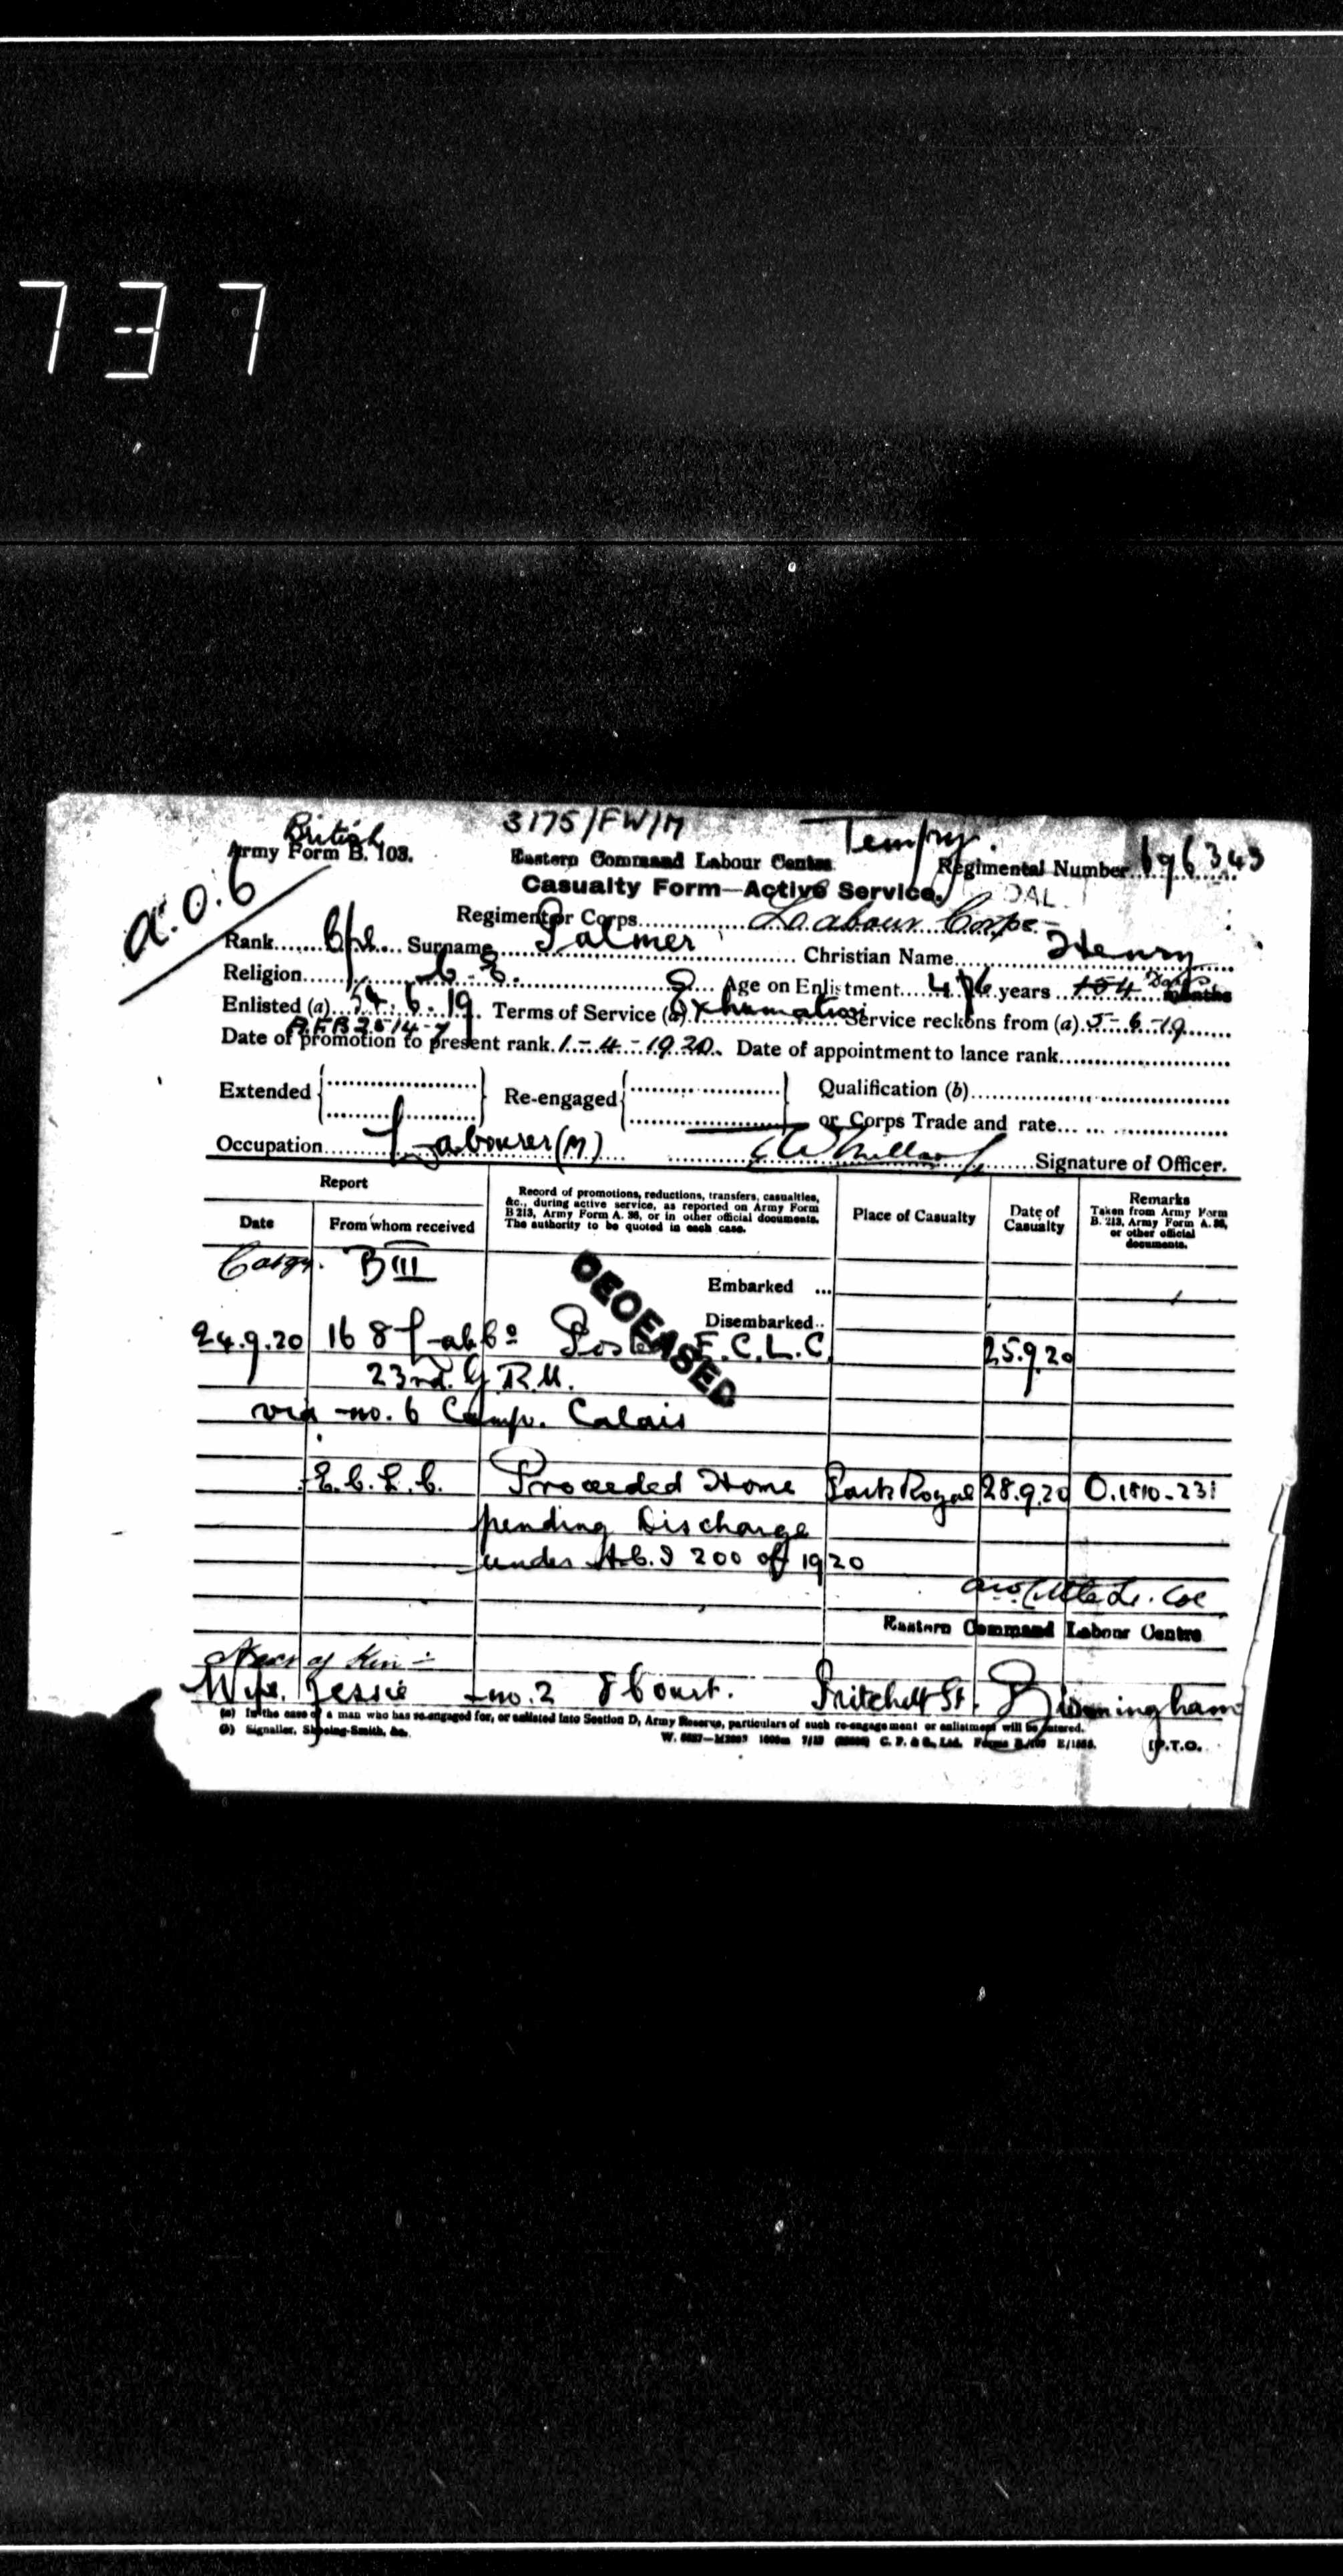 737
British
3175/FW/M
Tempy.
Army Form B. 103.
Eastern Command Labour Centre
Regimental Number 696343
a.o.6
Casualty Form—Active Service.
Regiment or Corps Labour Corps
Rank Cpl. Surname Palmer Christian Name Henry
Religion C.E. Age on Enlistment years 104 Days months
Enlisted (a) 6.19. Terms of Service (a) Exhumation Service reckons from (a) 5-6-19
Date of promotion to present rank 1-4-1920. Date of appointment to lance rank
Extended Re-engaged Qualification (b)
or Corps Trade and rate
Occupation Labourer (M) Signature of Officer.
Report
Date
From whom received
Record of promotions, reductions, transfers, casualties, &c., during active service, as reported on Army Form B 213, Army Form A. 36, or in other official documents. The authority to be quoted in each case.
Place of Casualty
Date of Casualty
Remarks
Taken from Army Form B. 213, Army Form A. 36, or other official documents.
Catgy. BIII
Embarked ...
Disembarked..
DECEASED
24.9.20 168 Lab Co Posted E.C.L.C. 25.9.20
23rd. G.R.U.
via no. 6 Camp. Calais
E.C.L.C. Proceeded Home Park Royal 28.9.20 O.1810-231
pending Discharge
under A.C.I 200 of 1920
Lt. Col
Eastern Command Labour Centre
Next of Kin:-
Wife. Jessie no. 2 8 Court. Pritchett St. Birmingham
(a) In the case of a man who has re-engaged for, or enlisted into Section D, Army Reserve, particulars of such re-engagement or enlistment will be entered.
(b) Signaller, Shoeing-Smith, &c.
[P.T.O.